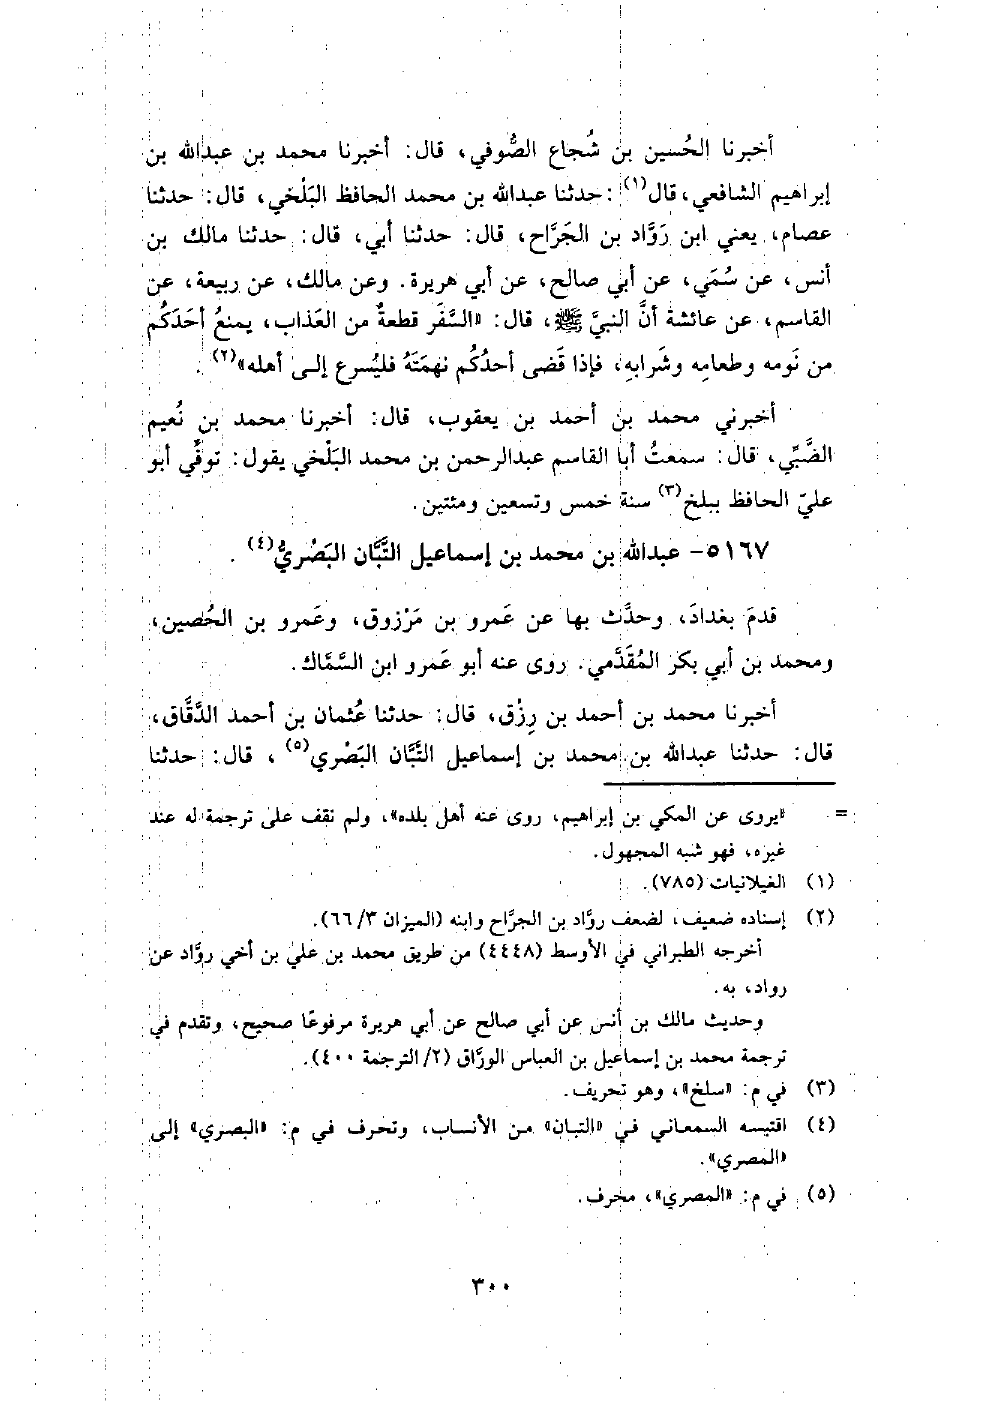 أخبرنا الحُسين بن شُجاع الصُّوفي، قال: أخبرنا محمد بن عبدالله بن
إبراهيم الشافعي، قال(١): حدثنا عبدالله بن محمد الحافظ البَلْخي، قال: حدثنا
عصام، يعني ابن رَوَّاد بن الجَرَّاح، قال: حدثنا أبي، قال: حدثنا مالك بن
أنس، عن سُمَي، عن أبي صالح، عن أبي هريرة. وعن مالك، عن ربيعة، عن
القاسم، عن عائشة أنَّ النبيَّ ﷺ، قال: «السَّفَر قطعةٌ من العَذاب، يمنعُ أحَدَكُم
من نَومه وطعامِه وشَرابهِ، فإذا قَضى أحدُكُم نهمَتَهُ فليُسرع إلى أهله»(٢).
أخبرني محمد بن أحمد بن يعقوب، قال: أخبرنا محمد بن نُعيم
الضَّبِّي، قال: سمعتُ أبا القاسم عبدالرحمن بن محمد البَلْخي يقول: توفِّي أبو
عليّ الحافظ ببلخ(٣) سنة خمس وتسعين ومئتين.
٥١٦٧- عبدالله بن محمد بن إسماعيل التَّبَّان البَصْريُّ(٤).
قدمَ بغدادَ، وحدَّث بها عن عَمرو بن مَرْزوق، وعَمرو بن الحُصين،
ومحمد بن أبي بكر المُقَدَّمي. روى عنه أبو عَمرو ابن السَّمَّاك.
أخبرنا محمد بن أحمد بن رِزْق، قال: حدثنا عُثمان بن أحمد الدَّقَّاق،
قال: حدثنا عبدالله بن محمد بن إسماعيل التَّبَّان البَصْري(٥)، قال: حدثنا
= «يروى عن المكي بن إبراهيم، روى عنه أهل بلده»، ولم نقف على ترجمة له عند
غيره، فهو شبه المجهول.
(١) الغيلانيات (٧٨٥).
(٢) إسناده ضعيف، لضعف روَّاد بن الجرَّاح وابنه (الميزان ٣/ ٦٦).
أخرجه الطبراني في الأوسط (٤٤٤٨) من طريق محمد بن علي بن أخي روَّاد عن
رواد، به.
وحديث مالك بن أنس عن أبي صالح عن أبي هريرة مرفوعًا صحيح، وتقدم في
ترجمة محمد بن إسماعيل بن العباس الورَّاق (٢/ الترجمة ٤٠٠).
(٣) في م: «سلخ»، وهو تحريف.
(٤) اقتبسه السمعاني في «التبان» من الأنساب، وتحرف في م: «البصري» إلى
«المصري».
(٥) في م: «المصري»، محرف.
٣٠٠